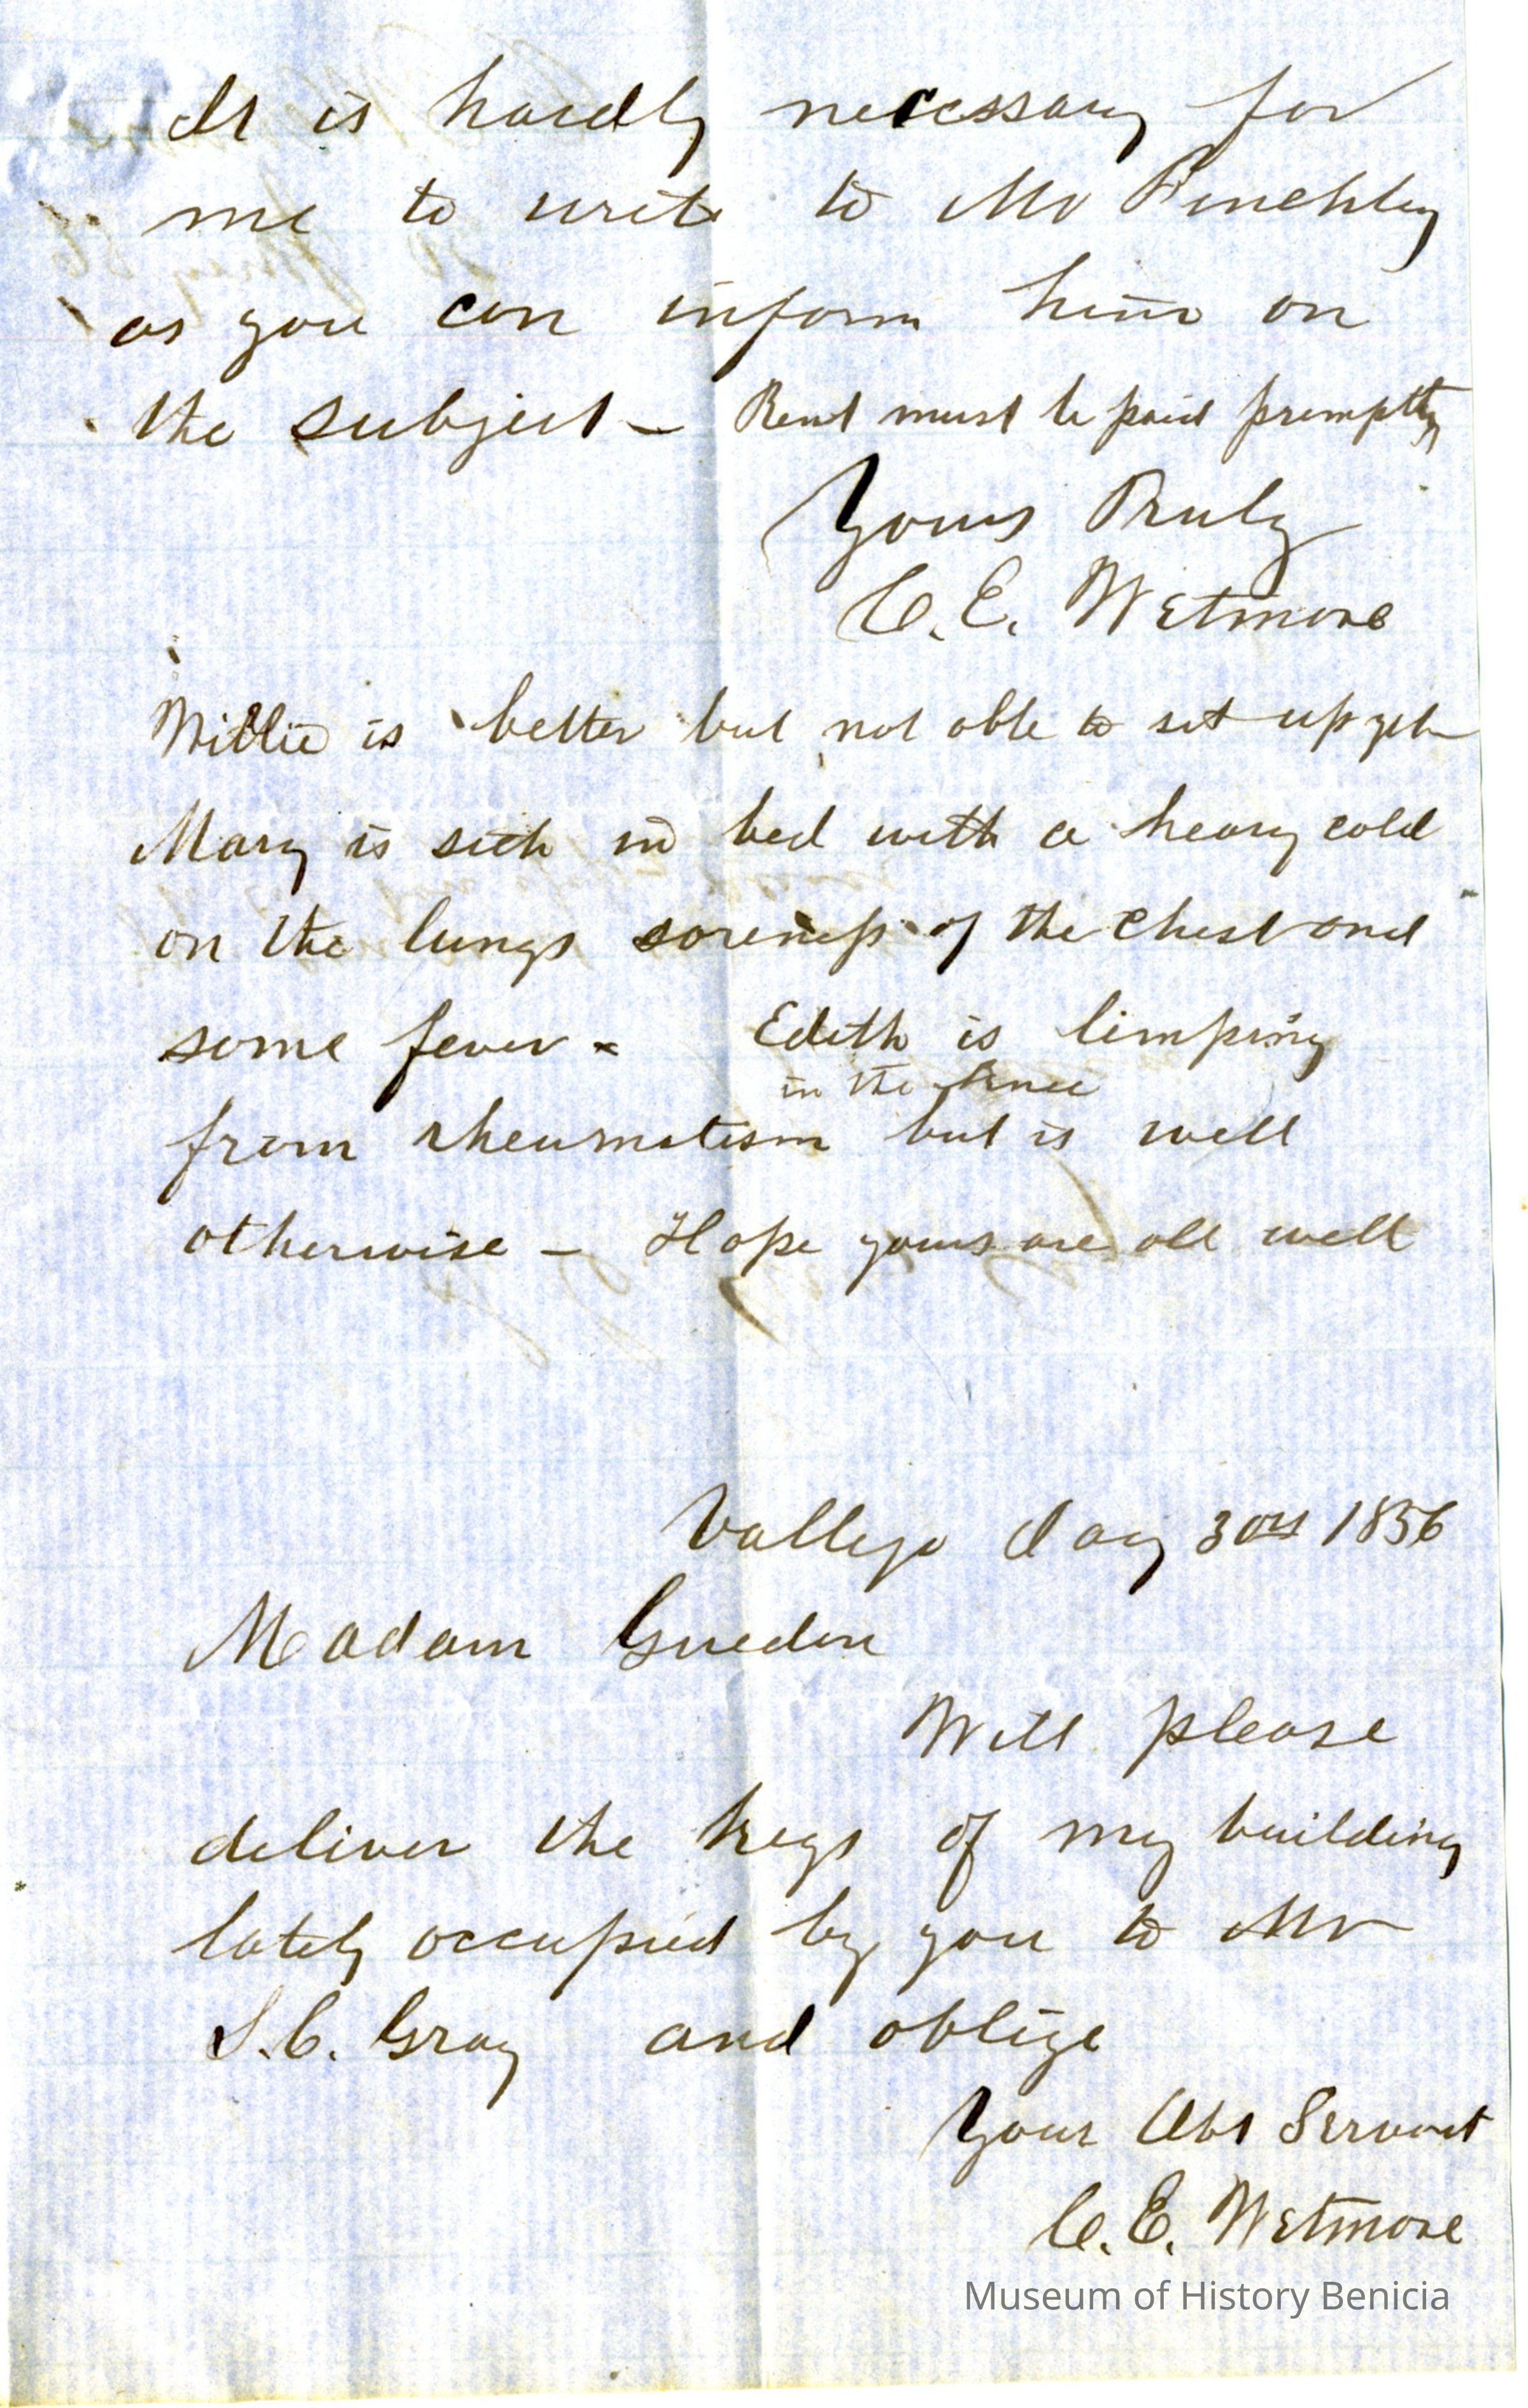 It is hardly necessary for
me to write to Mr Binchley
as you can inform him on
the subject – Rent must be paid promptly
Yours Truly
C. E. Wetmore
Willie is better but not able to set up yet
Mary is sick in bed with a heavy cold
on the lungs soreness of the chest and
some fever – Edith is limping
in the knee
from rheumatism but is well
otherwise – Hope yours are all well
Vallejo Jany 30th 1856
Madam
Will please
deliver the keys of my building
lately occupied by you to Mr
S. C. Gray and oblige
Your Obt Servant
C. E. Wetmore
Museum of History Benicia